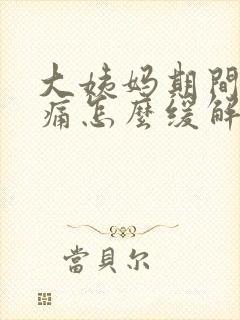 大姨妈期間
痛怎麼缓解
當貝尔